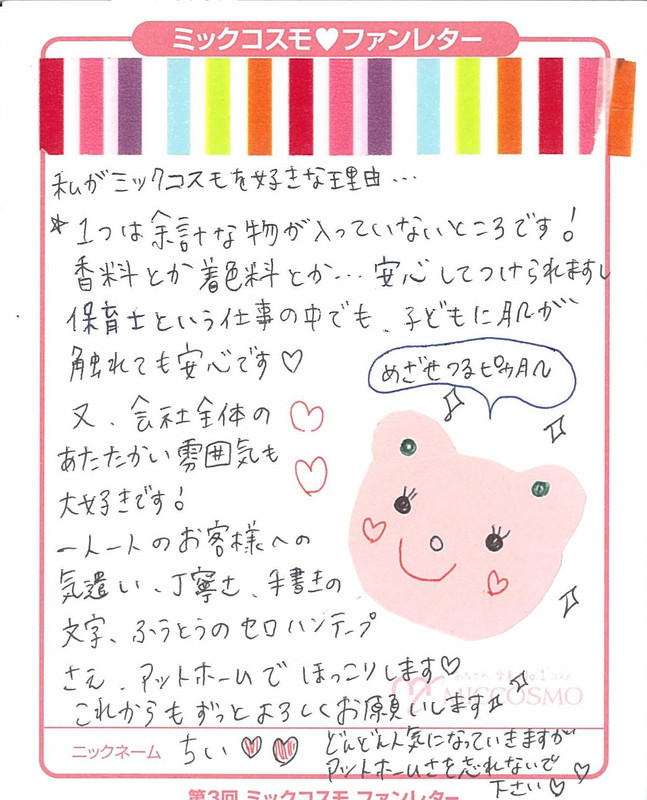 ミックコスモ♥ファンレター
私がミックコスモを好きな理由…
*1つは余計な物が入っていないところです!
香料とか着色料とか…安心してつけられますし
保育士という仕事の中でも、子どもに肌が
触れても安心です♡
めざせつるピカ肌
又、会社全体の
あたたかい雰囲気も
大好きです!
一人一人のお客様への
気遣い、丁寧さ、手書きの
文字、ふうとうのセロハンテープ
さえ、アットホームでほっこりします♡
MICCOSMO
これからもずっとよろしくお願いします
ニックネーム ちい♡♡
どんどん人気になっていきますが
アットホームさを忘れないで
下さい♡♡
第3回 ミックコスモ ファンレター